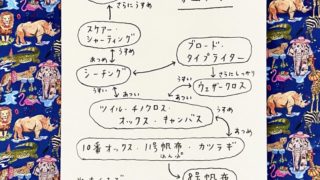 さらにうすめ
スケアー
シャーティング
うすめ
あつめ
シーチング
ブロード・
タイプライター
さらにしっかり
うすい
あつい
ウェザークロス
うすい
あつい
ツイル・チノクロス
オックス・キャンバス
うすめ
あつめ
10番オックス・11号帆布・カツラギ
はんぷ
8号帆布